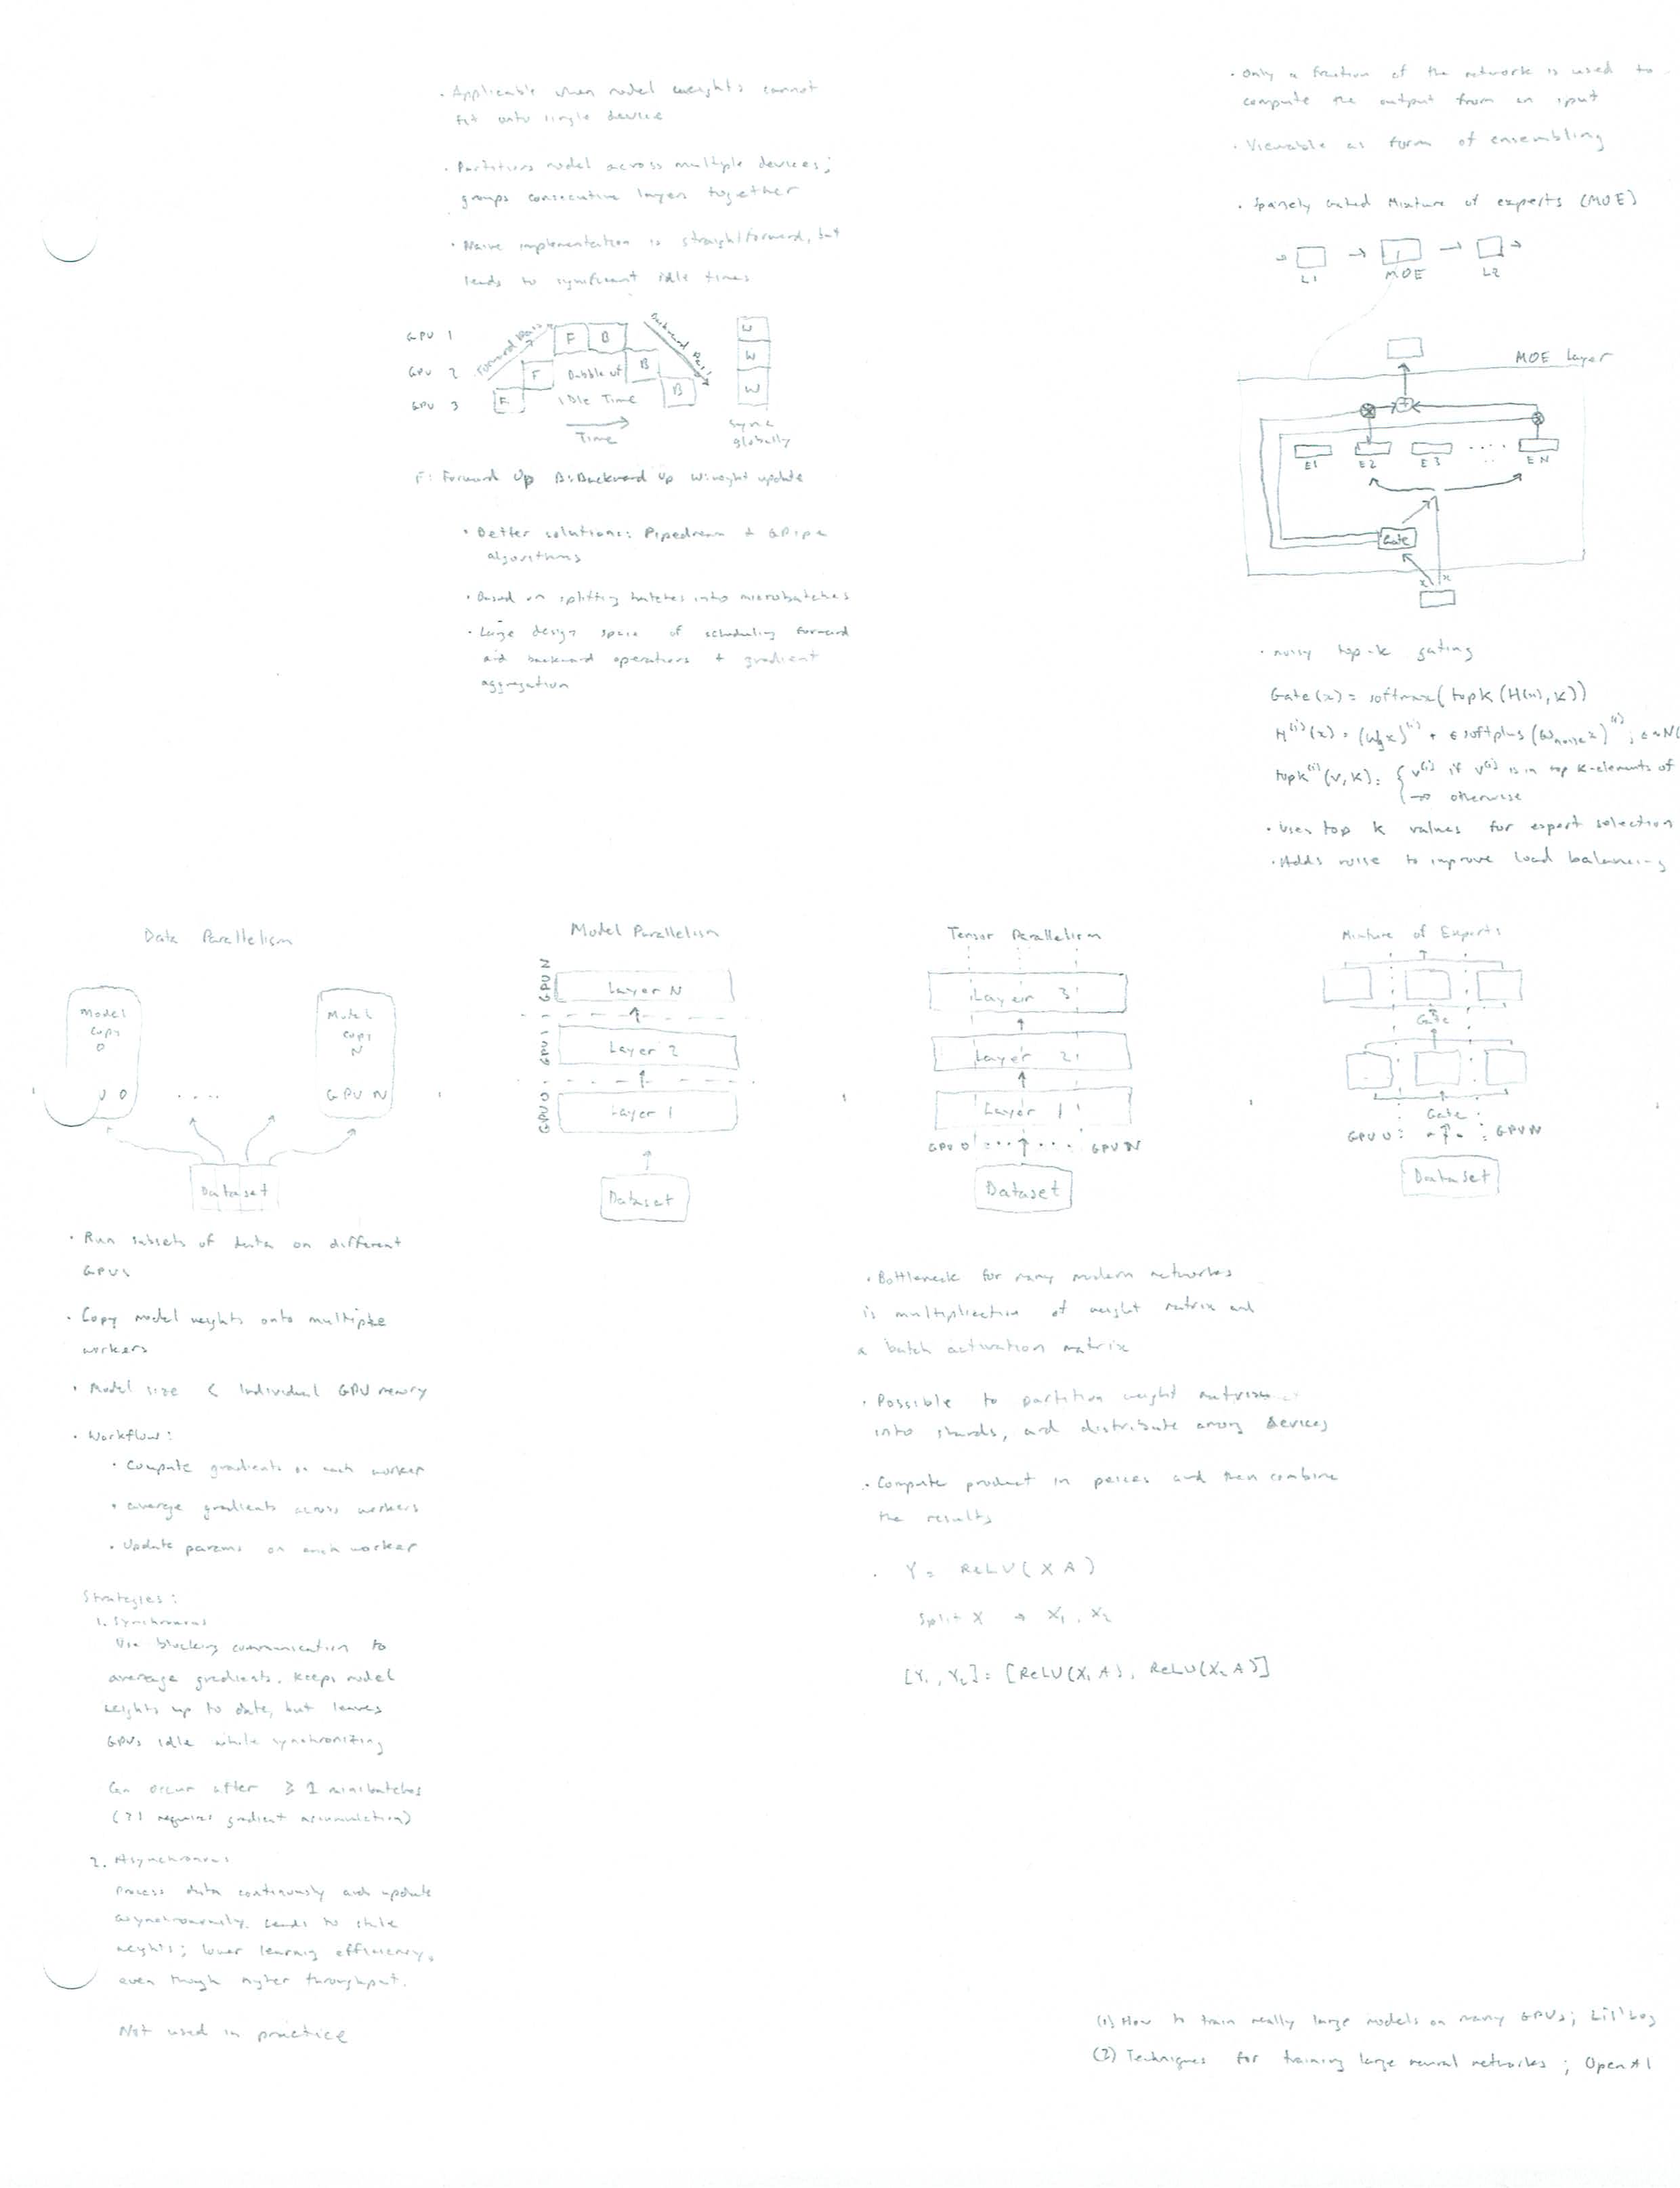 • Applicable when model weights cannot
fit onto single device
• Partitions model across multiple devices;
groups consecutive layers together
• Naive implementation is straightforward, but
leads to significant idle times
GPU 1
GPU 2
GPU 3
Forward Pass
F
B
F
Bubble of
B
F
Idle Time
B
Backward Pass
Time
W
W
W
Sync
globally
F: Forward Up B: Backward Up W: weight update
• Better solutions: Pipedream + GPipe
algorithms
• Based on splitting batches into microbatches
• Large design space of scheduling forward
and backward operations + gradient
aggregation
• Only a fraction of the network is used to
compute the output from an iput
• Viewable as form of ensembling
• Sparsely Gated Mixture of experts (MOE)
L1
MOE
L2
MOE Layer
+
E1
E2
E3
....
EN
Gate
x
x
• noisy top-k gating
Gate(x) = softmax(topk(H(x), K))
H^(i)(x) = (Wg x)^(i) + ϵ softplus(W_noise x)^(i); ϵ ~ N(
topk^(i)(v, K) = { v^(i) if v^(i) is in top K-elements of
-∞ otherwise
• Uses top k values for expert selection
• Adds noise to improve load balancing
Data Parallelism
Model
Copy
0
U 0
....
Model
copy
N
GPU N
Dataset
• Run subsets of data on different
GPUs
• Copy model weights onto multiple
workers
• Model size < Individual GPU memory
• Workflow:
• Compute gradients on each worker
• average gradients across workers
• Update params on each worker
Strategies:
1. Synchronous
Use blocking communication to
average gradients. Keeps model
weights up to date, but leaves
GPUs idle while synchronizing
Can occur after ≥ 1 minibatches
(>1 requires gradient accumulation)
2. Asynchronous
Process data continuously and update
asynchronously. Leads to stale
weights; lower learning efficiency,
even though higher throughput.
Not used in practice
Model Parallelism
GPU N
Layer N
GPU 1
Layer 2
GPU 0
Layer 1
Dataset
Tensor Parallelism
Layer 3
Layer 2
Layer 1
GPU 0
GPU N
Dataset
• Bottleneck for many modern networks
is multiplication of weight matrix and
a batch activation matrix
• Possible to partition weight matrix
into shards, and distribute among devices
• Compute product in peices and then combine
the results
• Y = ReLU(XA)
Split X → X1, X2
[Y1, Y2] = [ReLU(X1 A), ReLU(X2 A)]
Mixture of Experts
Gate
Gate
GPU 0
GPU N
Dataset
(1) How to train really large models on many GPUs; Lil'Log
(2) Techniques for training large neural networks; OpenAI